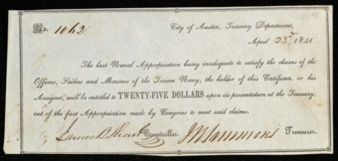 No. 1062
City of Austin, Treasury Department,
April 23d 1841
The last Naval Appropriation being inadequate to satisfy the claims of the
Officers, Sailors and Marines of the Texian Navy, the holder of this Certificate, or his
Assignee, will be entitled to TWENTY-FIVE DOLLARS upon its presentation at the Treasury,
out of the first Appropriation made by Congress to meet said claims.
Comptroller. Treasurer.